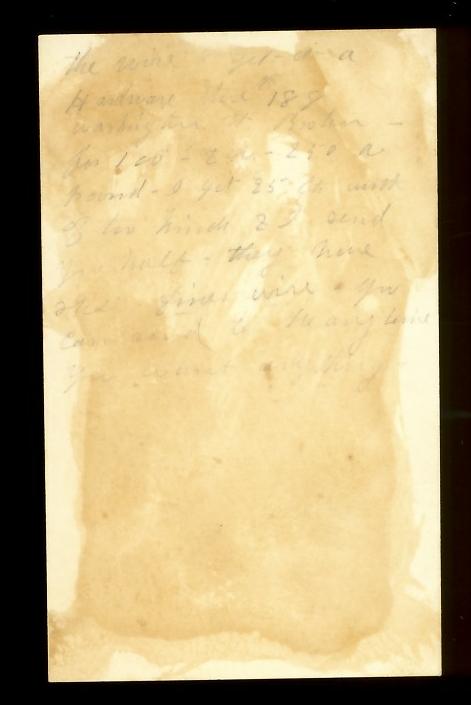 the wire I get at a
Hardware 189
Washington St Boston -
for 100 - 2 250 a
pound - I get 25 cts worth
of two kinds & I send
you half - they have
finer wire - you
can send to them any time
you want anything -